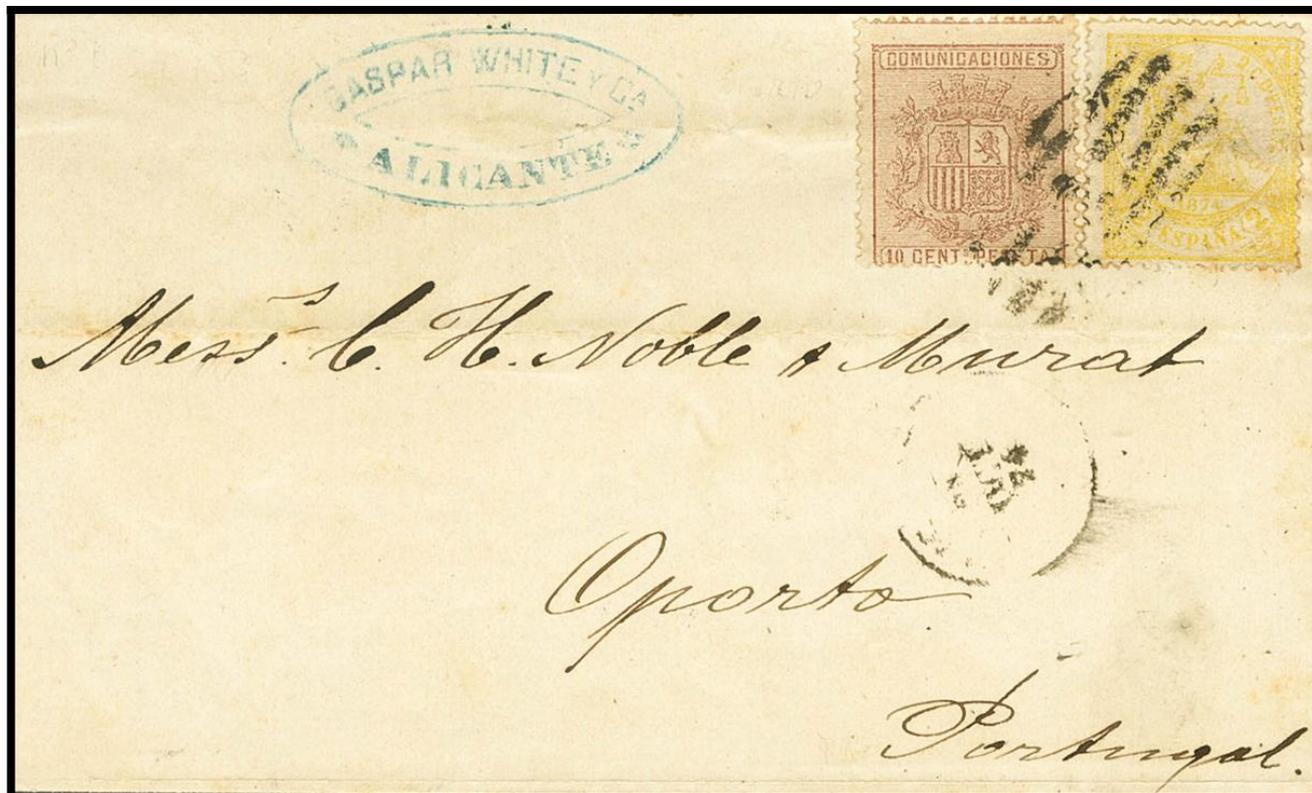 GASPAR WHITE Y CA
ALICANTE
COMUNICACIONES
10 CENT. PESETA
1874
ESPAÑA 2
Mess.rs C. H. Noble & Murat
Oporto
Portugal.